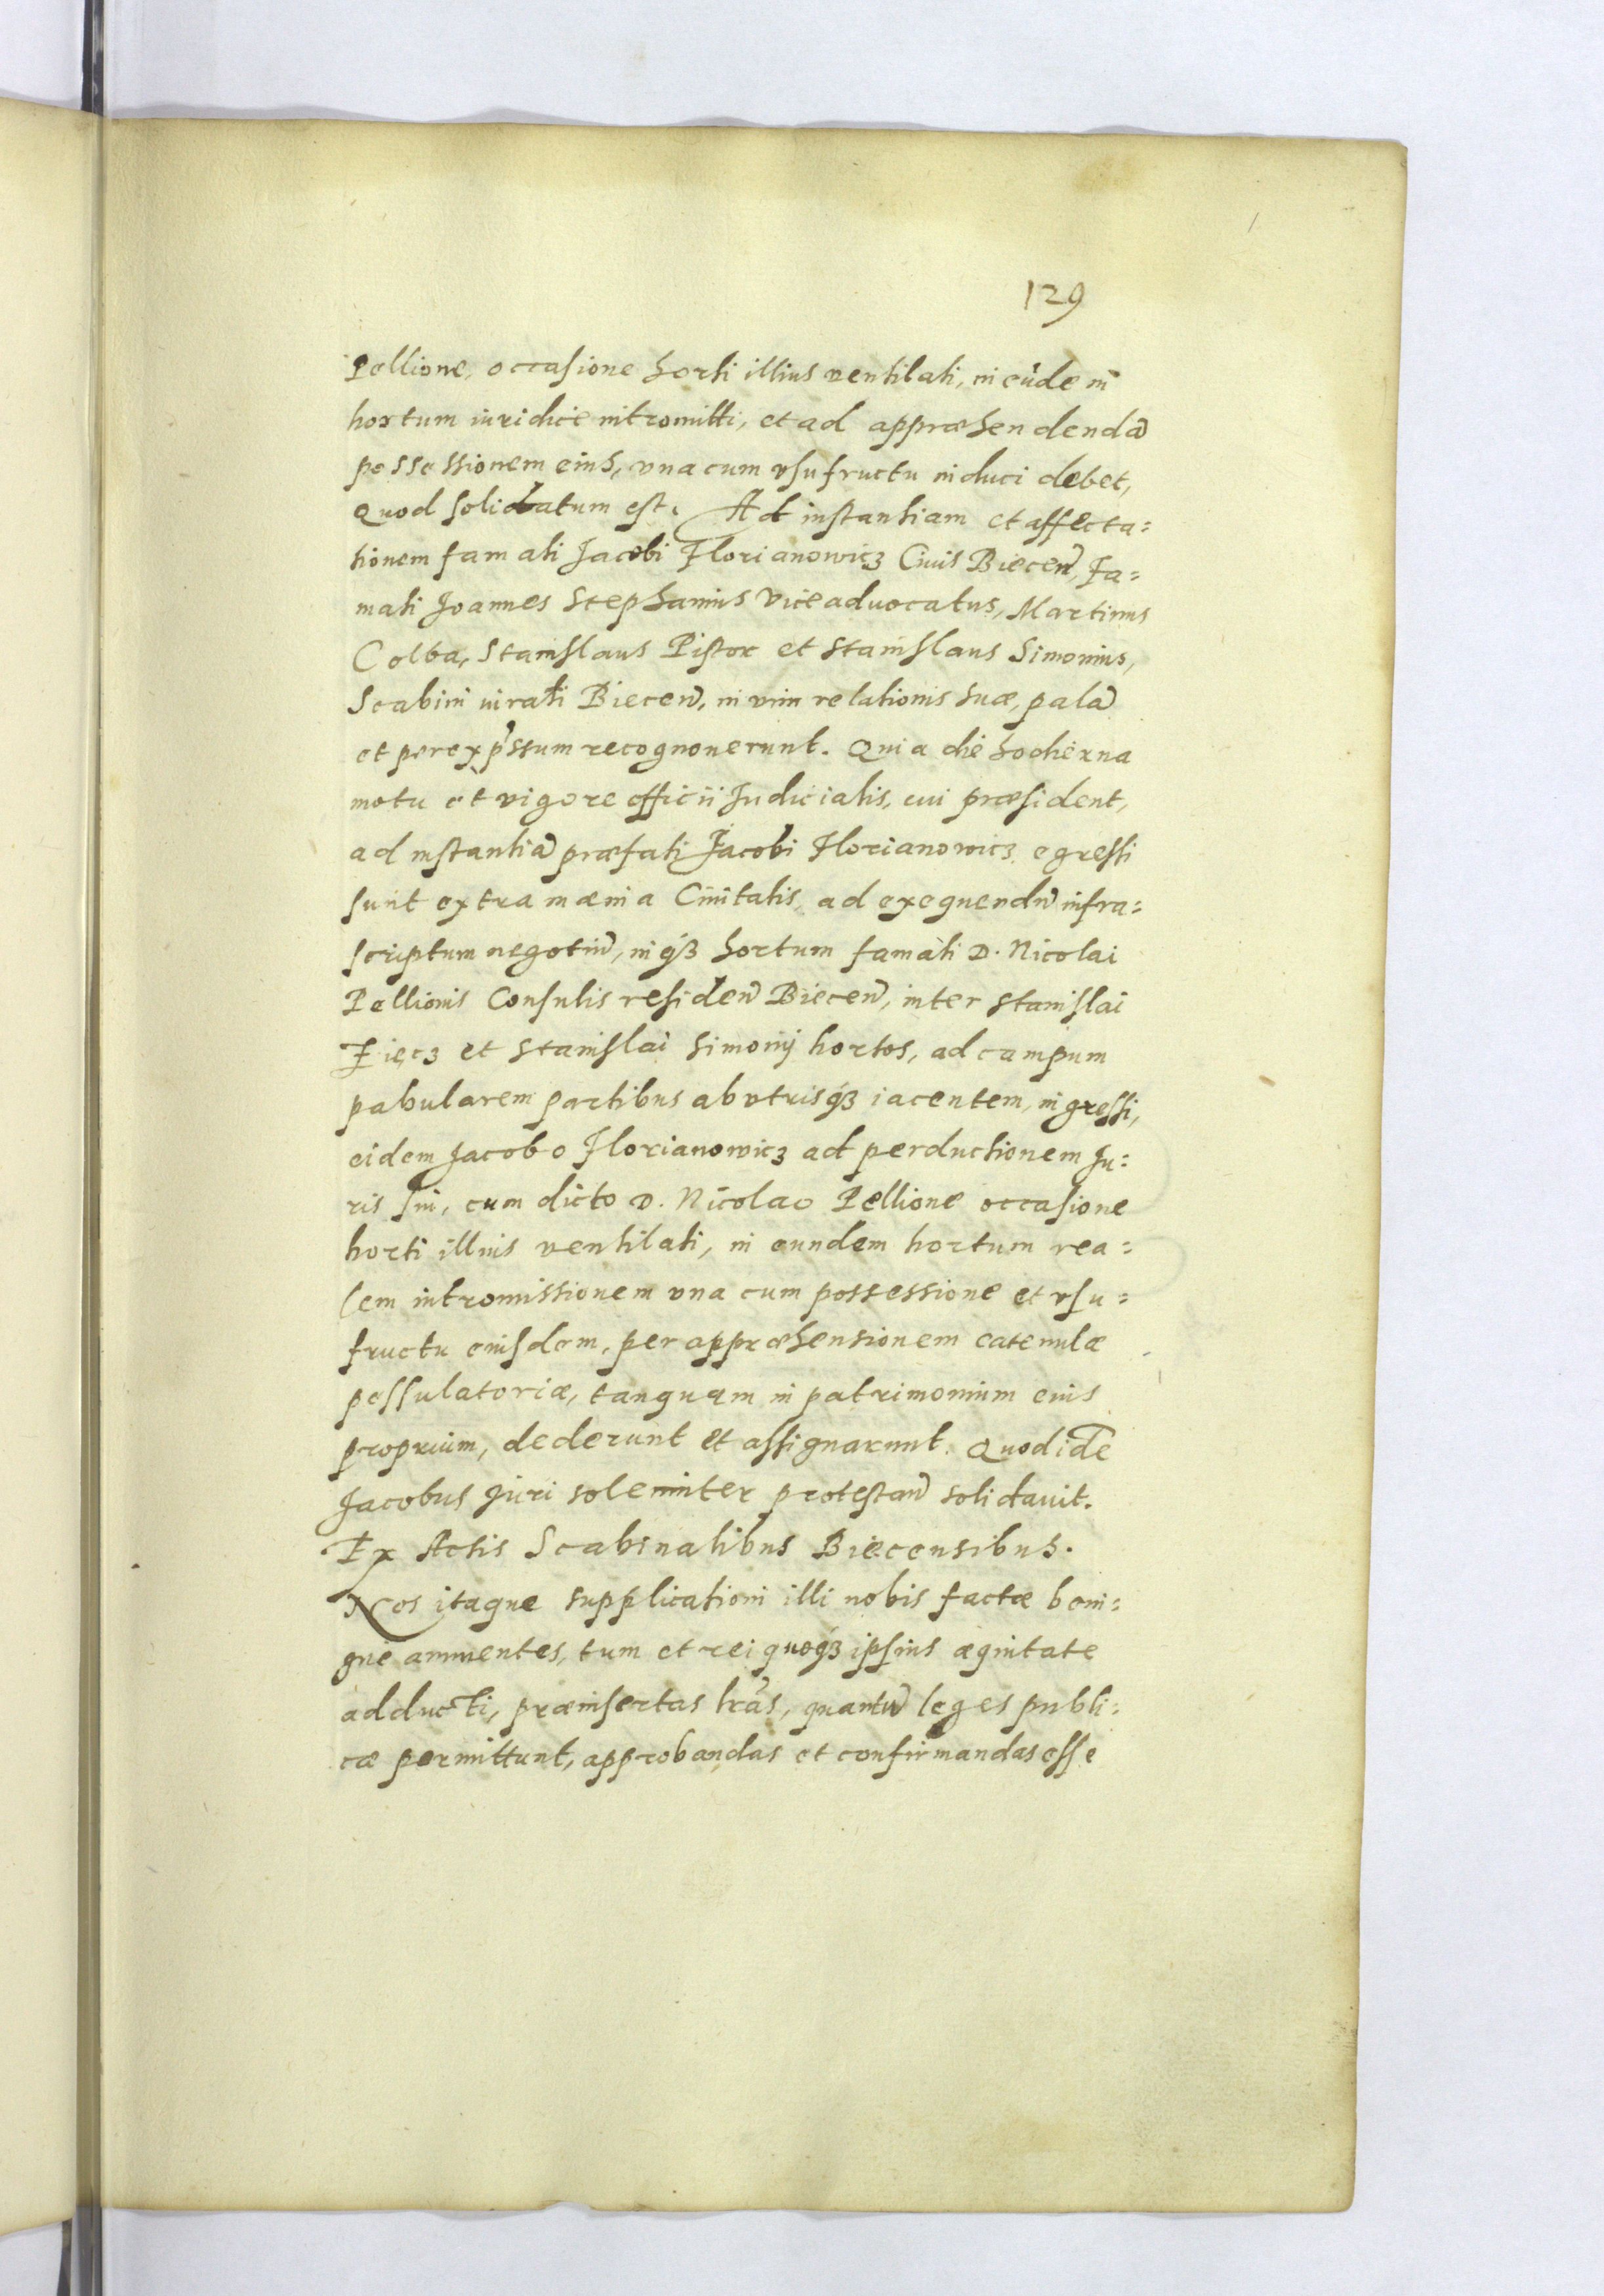 129
Pellione, occasione horti illius ventilati, in eūde m̄
hortum iuridice intromitti, et ad appræhendendā
possessionem eius, vna cum vsufructu induci debet,
Quod solidatum est. Ad instantiam et affecta=
tionem famati Jacobi Florianowicz Ciuis Biecen̄, Fa=
mati Joannes Stephanius Viceaduocatus, Martinus
Colba, Stanislaus Pistor et Stanislaus Simonius,
Scabini iurati Biecen̄, in vim relationis suæ, palā
et per exp̄ssum recognouerunt. Quia die hodierna
motu et vigore officii Judicialis, cui præsident,
ad instantiā præfati Jacobi Florianowicz egressi
sunt extra mænia Ciuitatis, ad exequendū infra=
scriptum negotiū, inq́ꝫ hortum famati D. Nicolai
Pellionis Consulis residen̄ Biecen̄, inter Stanislai
Fiecz et Stanislai Simonij hortos, ad campum
pabularem partibus ab vtrisq́ꝫ iacentem, ingressi,
eidem Jacobo Florianowicz ad perductionem Ju=
ris sui, cum dicto D. Nicolao Pellione occasione
horti illius ventilati, in eundem hortum rea=
lem intromissionem vna cum possessione et vsu=
fructu eiusdem, per appræhensionem catenulæ
pessulatoriæ, tanquam in patrimonium eius
proprium, dederunt et assignarunt. Quod idē
Jacobus Juri solemniter protestan̄ solidauit.
Ex Actis Scabinalibus Biecensibus.
Nos itaque supplicationi illi nobis factæ beni=
gne annuentes, tum et rei quoq́ꝫ ipsius æquitate
adducti, præinsertas lr̃as, quantū leges publi=
cæ permittunt, approbandas et confirmandas esse